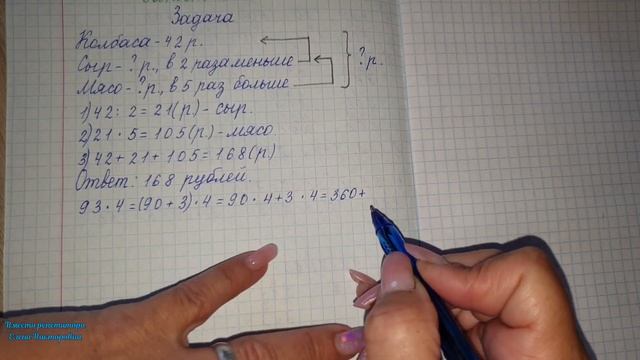 Задача
Колбаса - 42 р.
Сыр - ? р., в 2 раза меньше
Мясо - ? р., в 5 раз больше
? р.
1) 42 : 2 = 21 (р) - сыр.
2) 21 · 5 = 105 (р) - мясо
3) 42 + 21 + 105 = 168 (р)
Ответ: 168 рублей.
93 · 4 = (90 + 3) · 4 = 90 · 4 + 3 · 4 = 360 +
Вместо репетитора
Елена Викторовна